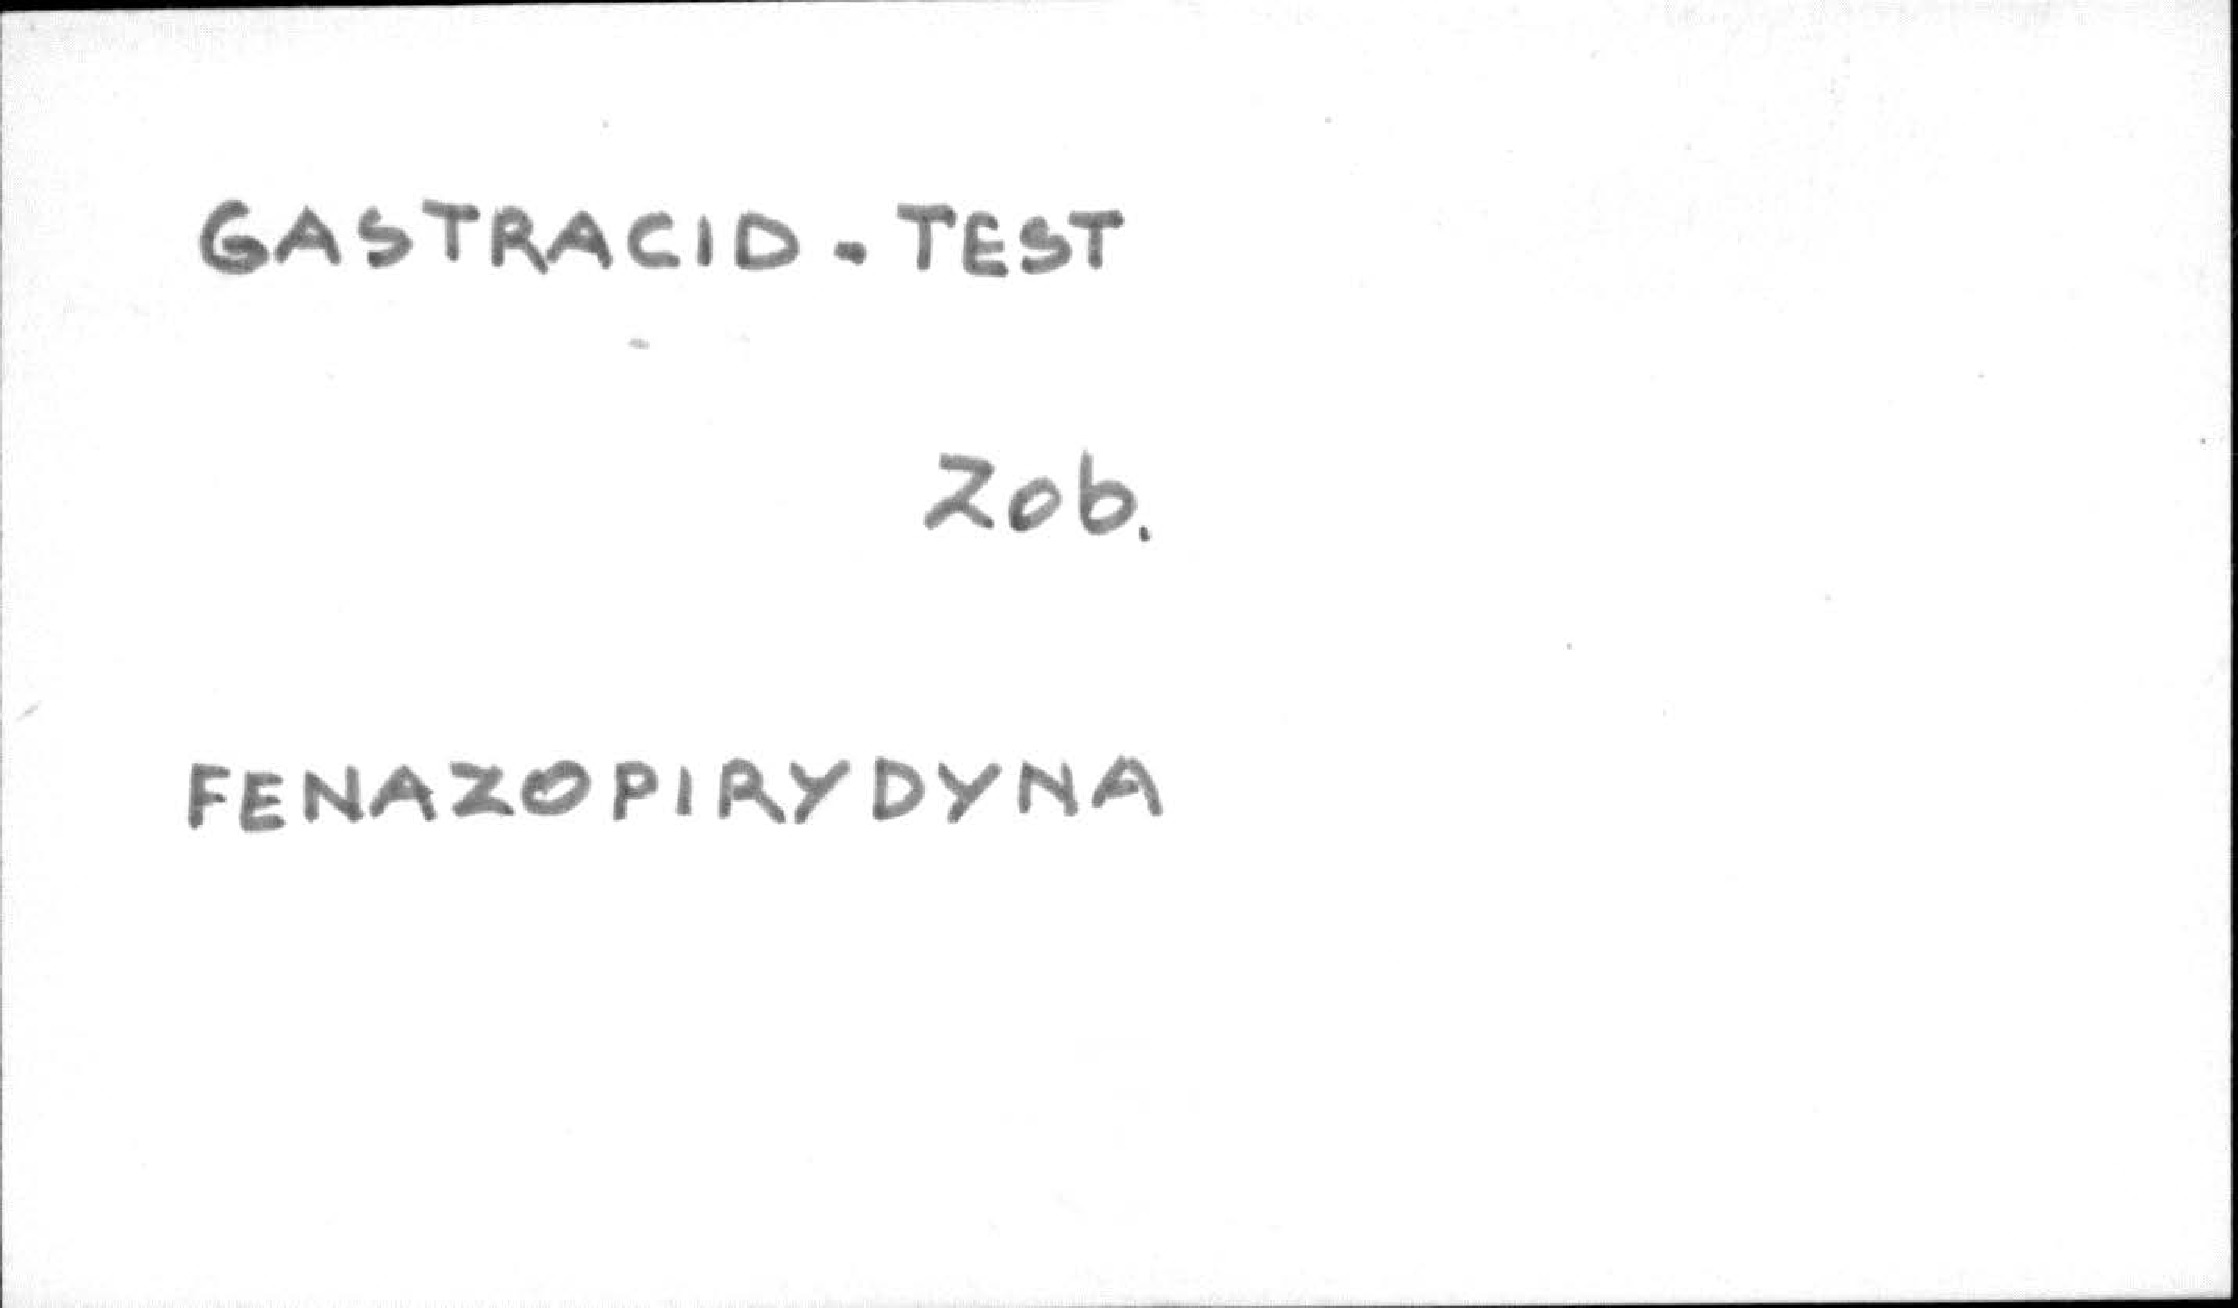 GASTRACID - TEST
Zob.
FENAZOPIRYDYNA